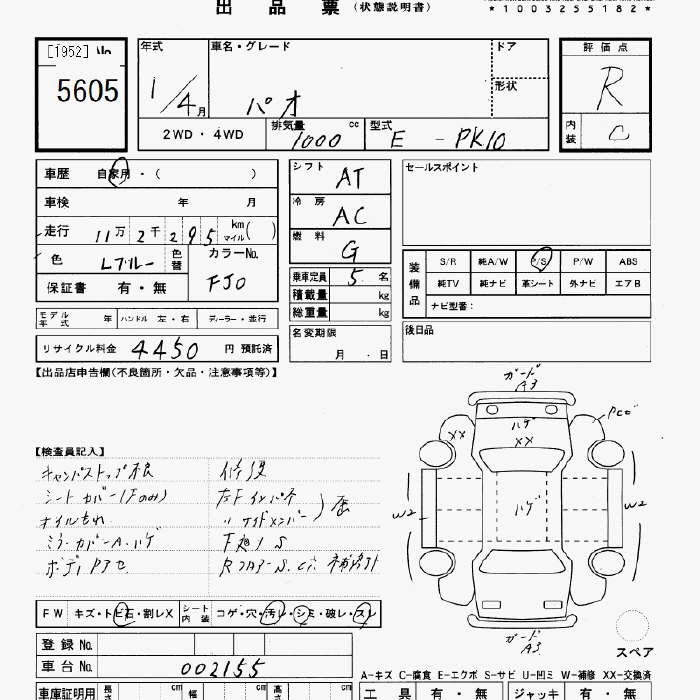 出品票（状態説明書）
*1003255182*
[1952] No
5605
年式
1/4月
車名・グレード
パオ
ドア
形状
評価点
R
内装 C
2WD・4WD
排気量 1000 cc
型式 E - PK10
車歴 自家用・（ ）
車検 年 月
走行 11万 2千 295 km マイル( )
色 Lブルー 色替
カラーNo. FJ0
保証書 有・無
シフト AT
冷房 AC
燃料 G
乗車定員 5 名
積載量 kg
総重量 kg
セールスポイント
装備品
S/R 純A/W P/S P/W ABS
純TV 純ナビ 革シート 外ナビ エアB
ナビ型番：
モデル年式 年 ハンドル 左・右 ディーラー・並行
リサイクル料金 4450 円 預託済
名変期限 月 日
後日品
【出品店申告欄(不良箇所・欠品・注意事項等)】
ガード A3
ハゲ
XX
XX
W2
ハゲ
W2
【検査員記入】
キャンバストップ 修復
シートカバー(Fのみ) 左Fインパネ
オイルもれ 〃サイドメンバー
ミラーカバーA・ハゲ
ボディ
ガード A3
スペア
FW キズ・トビ石・割レX シート内装 コゲ・穴・汚レ・シミ・破レ・スレ
登録No.
車台No. 002155
A－キズ C－腐食 E－エクボ S－サビ U－凹ミ W－補修 XX－交換済
車庫証明用 長さ cm 幅 cm 高さ cm
工具 有・無 ジャッキ 有・無